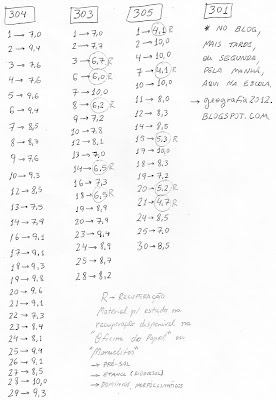 304
1 → 7,0
2 → 9,4
3 → 7,6
4 → 7,6
5 → 9,6
6 → 9,4
7 → 8,5
8 → 8,7
9 → 7,6
10 → 9,3
12 → 8,5
13 → 7,5
14 → 7,9
16 → 9,1
17 → 9,1
18 → 9,3
19 → 9,8
20 → 9,6
21 → 9,1
22 → 7,3
23 → 8,4
24 → 8,1
25 → 9,4
26 → 9,1
27 → 8,5
28 → 10,0
29 → 9,3
303
1 → 7,0
2 → 7,7
3 → 6,7 R
6 → 6,0 R
7 → 10,0
8 → 6,2 R
9 → 7,2
10 → 7,8
12 → 8,1
13 → 7,0
14 → 6,5 R
16 → 7,3
18 → 6,5 R
19 → 8,9
20 → 8,9
23 → 9,4
24 → 8,9
25 → 8,7
28 → 8,2
305
1 → 4,1 R
2 → 10,0
4 → 10,0
7 → 4,1 R
10 → 10,0
11 → 8,0
12 → 8,3
14 → 8,5
15 → 5,3 R
18 → 10,0
18 → 8,3
19 → 7,2
20 → 5,2 R
21 → 4,7 R
24 → 8,5
25 → 7,0
30 → 8,5
301
* NO BLOG,
MAIS TARDE,
OU SEGUNDA,
PELA MANHÃ,
AQUI NA ESCOLA.
→ geografia2012.
BLOGSPOT.COM
R → RECUPERAÇÃO
Material p/ estudo na
recuperação disponível na
"Oficina do Papel" ou
"Monuelitos"
→ PRÉ-SAL
→ ETANOL (BIODIESEL)
→ DOMÍNIOS MORFOCLIMÁTICOS